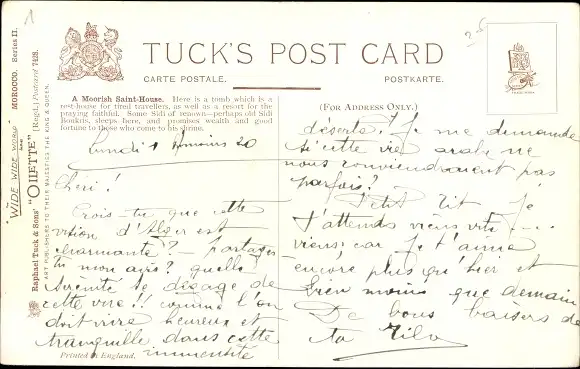 TUCK'S POST CARD
CARTE POSTALE. POSTKARTE.
"WIDE-WIDE-WORLD" MOROCCO. Series II.
Raphael Tuck & Sons' "OILETTE" [Regd.] Postcard 7428.
ART PUBLISHERS TO THEIR MAJESTIES THE KING & QUEEN.
A Moorish Saint-House. Here is a tomb which is a
rest-house for tired travellers, as well as a resort for the
praying faithful. Some Sidi of renown—perhaps old Sidi
Bonkris, sleeps here, and promises wealth and good
fortune to those who come to his shrine.
Lundi 20
Chéri!
Crois-tu que cette
vision d'Alger est
charmante? - partages
tu mon avis? quelle
sérénité se dégage de
cette vue!! comme l'on
doit vivre heureux et
tranquille dans cette
immensité
Printed in England.
(FOR ADDRESS ONLY.)
déserte! Je me demande
si cette vie arabe ne
nous conviendraient pas
parfois?
Petit Tit je
t'attends viens vite
viens; car Je t'aime
encore plus qu'hier et
bien moins que demain
De bons baisers de
ta